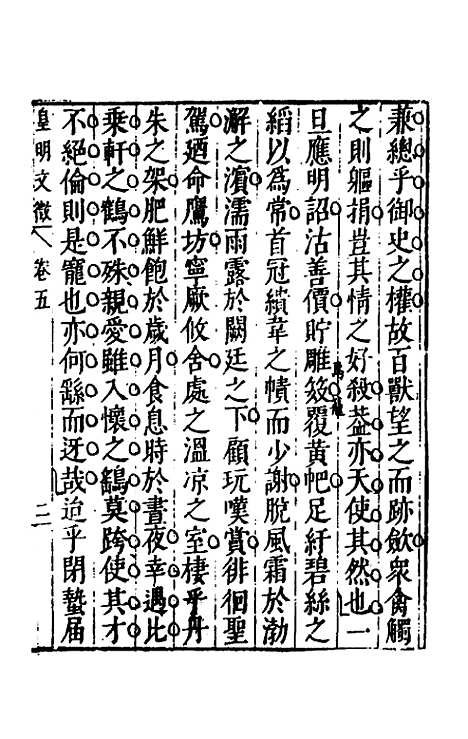 兼總乎御史之權故百獸望之而跡斂衆禽觸
之則軀捐豈其情之好殺葢亦天使其然也一
旦應明詔沽善價貯雕笯覆黃帊足紆碧絲之
鳥籠
縚以為常首冠繢韋之幘而少謝脫風霜於渤
澥之濵濡雨露於闕廷之下顧玩嘆賞徘徊聖
駕廼命鷹坊寧厥攸舍處之溫凉之室棲乎丹
朱之架肥鮮飽於歲月食息時於晝夜幸遇比
乘軒之鶴不殊親愛雖入懷之鷂莫跨使其才
不絕倫則是寵也亦何繇而迓哉迨乎閉蟄届
皇明文徵 卷五 二